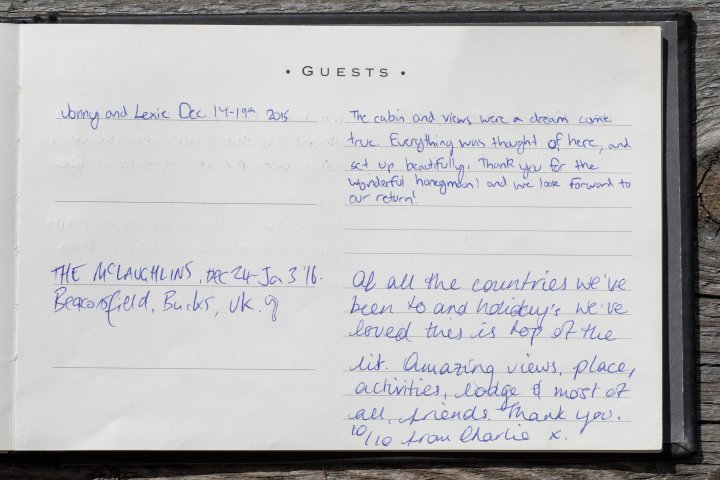 • GUESTS •
Jonny and Lexie Dec 14-19th 2015
The cabin and views were a dream come
true. Everything was thought of here, and
set up beautifully. Thank you for the
wonderful honeymoon! and we look forward to
our return!
THE MCLAUGHLINS, DEC 24-Jan 3 '16.
Beaconsfield, Bucks, UK.
Of all the countries we've
been to and holiday's we've
loved this is top of the
list. Amazing views, place,
activities, lodge & most of
all, friends. Thank you.
10/10 from Charlie x.